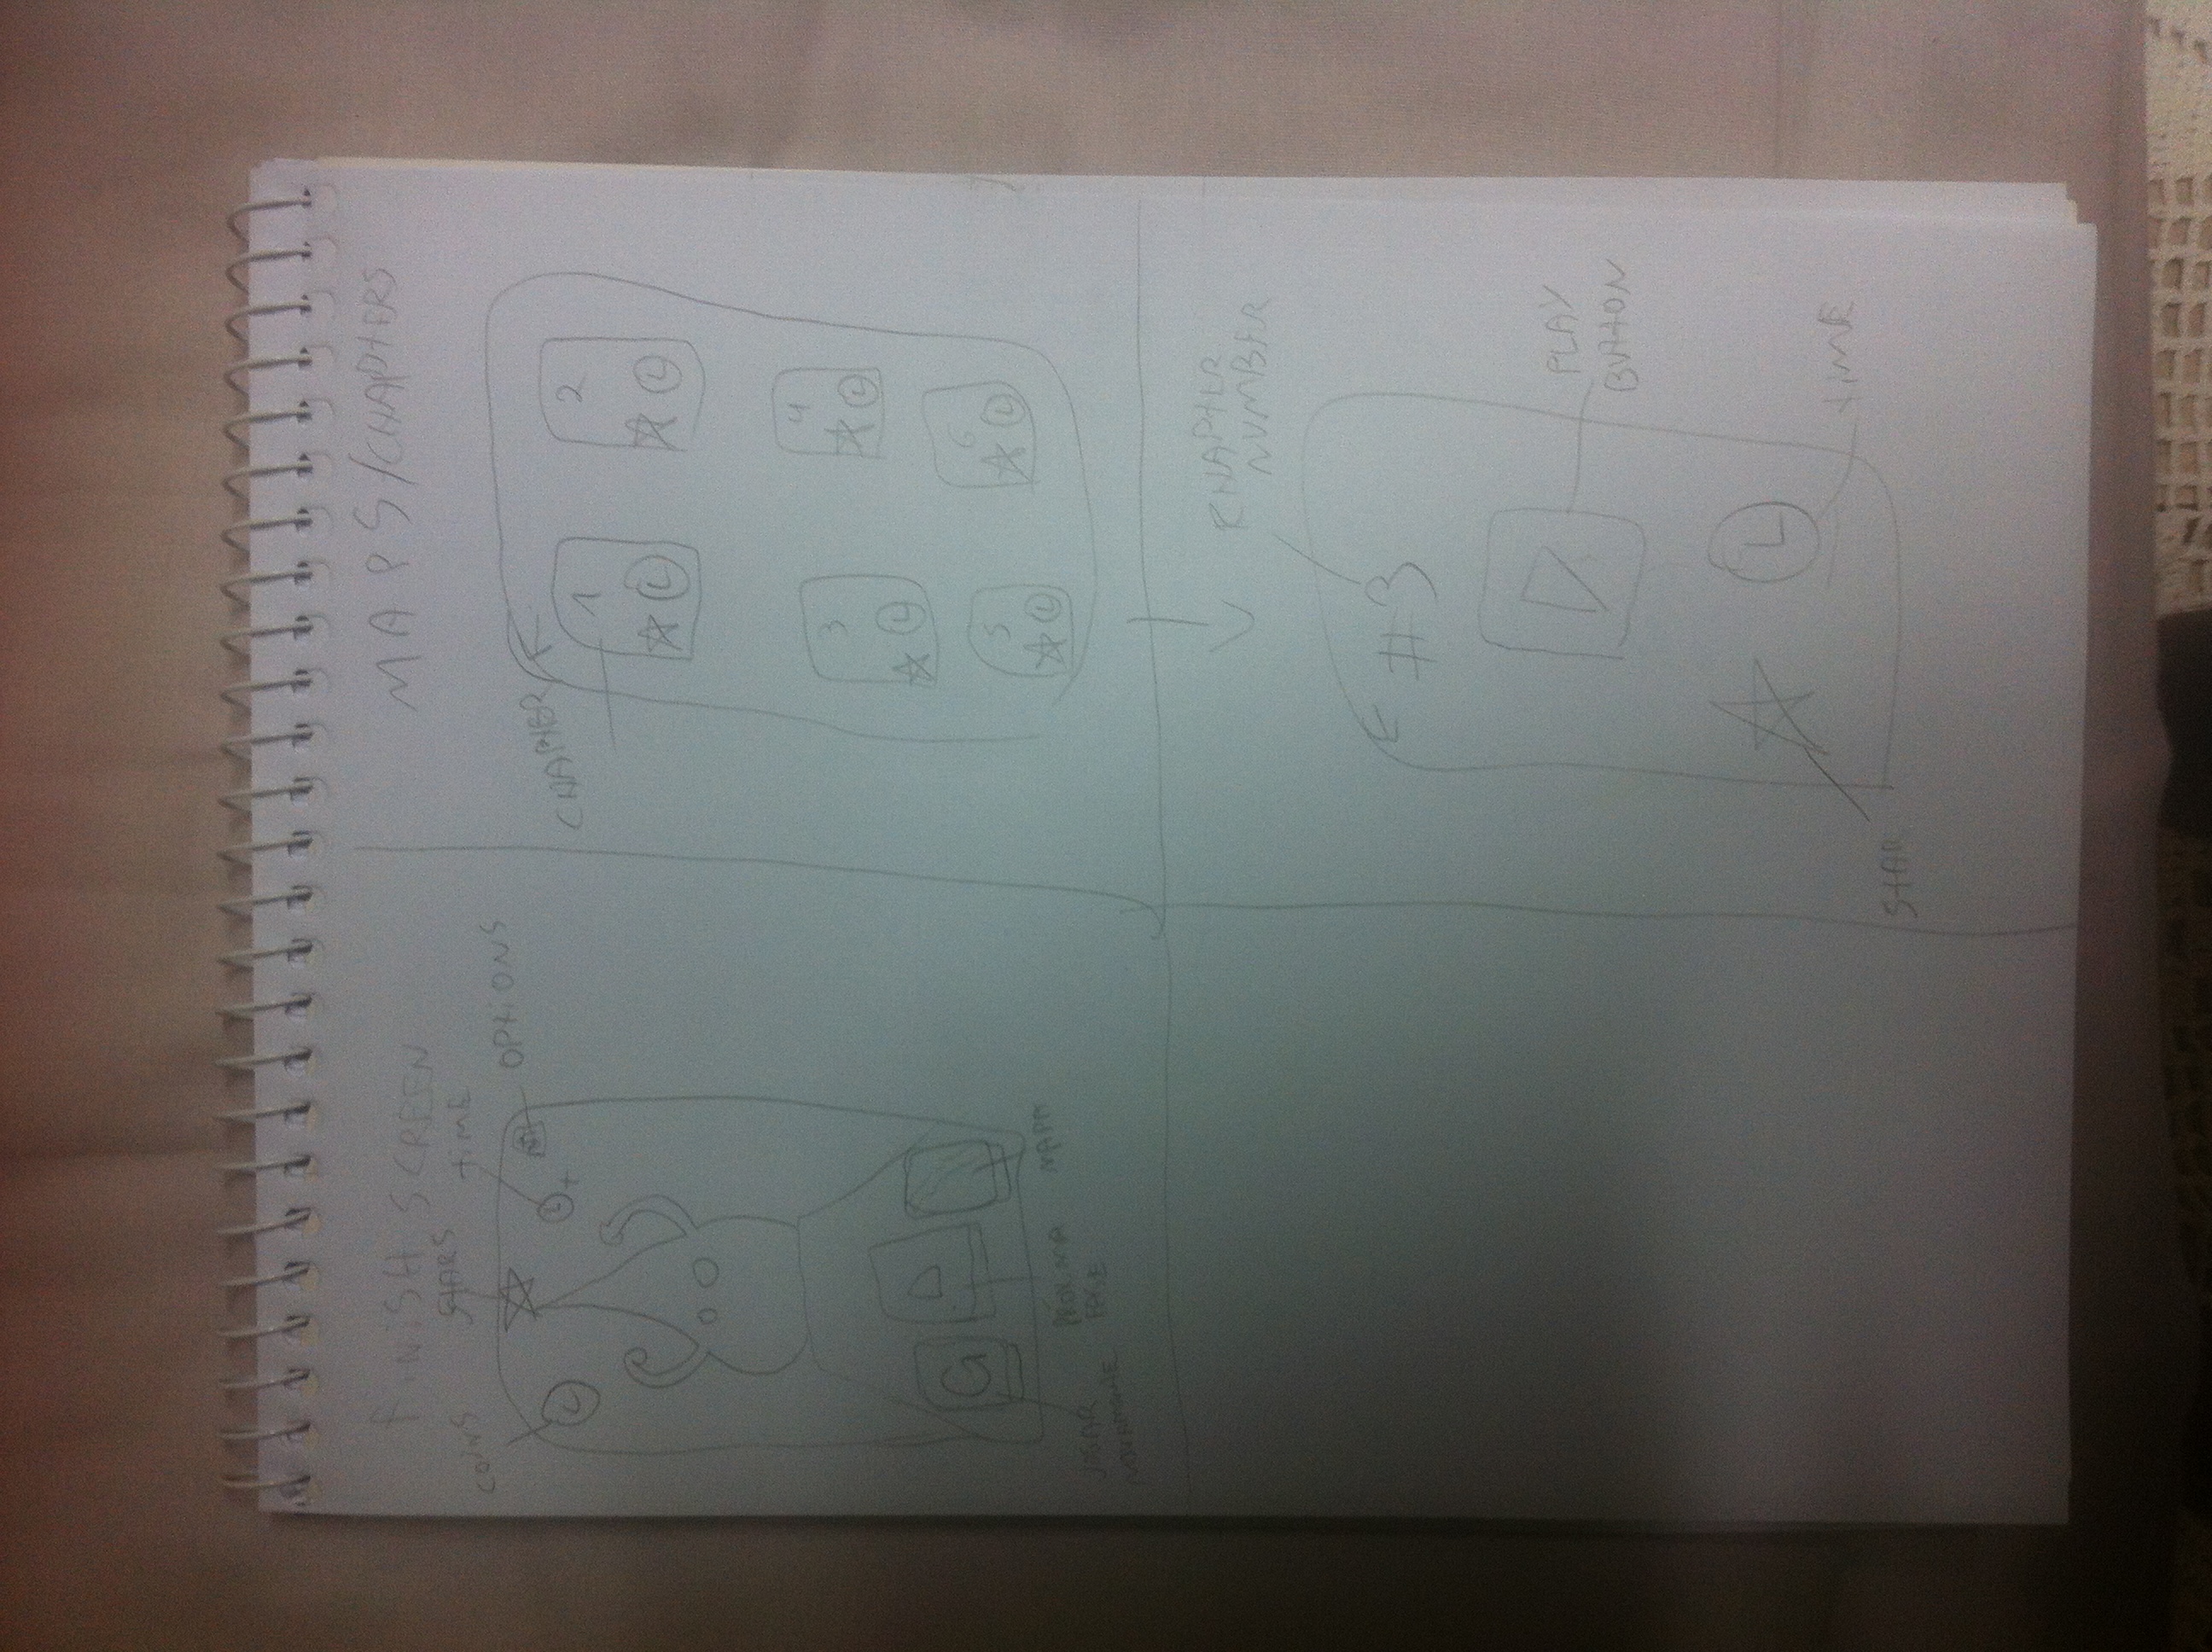 FINISH SCREEN
COINS
STARS
TIME
OPTIONS
G
JOGAR
NOVAMENTE
PROXIMA
FASE
MAPA
MAPS/CHAPTERS
CHAPTER
1
2
3
4
5
6
CHAPTER
NUMBER
#3
PLAY
BUTTON
STAR
TIME